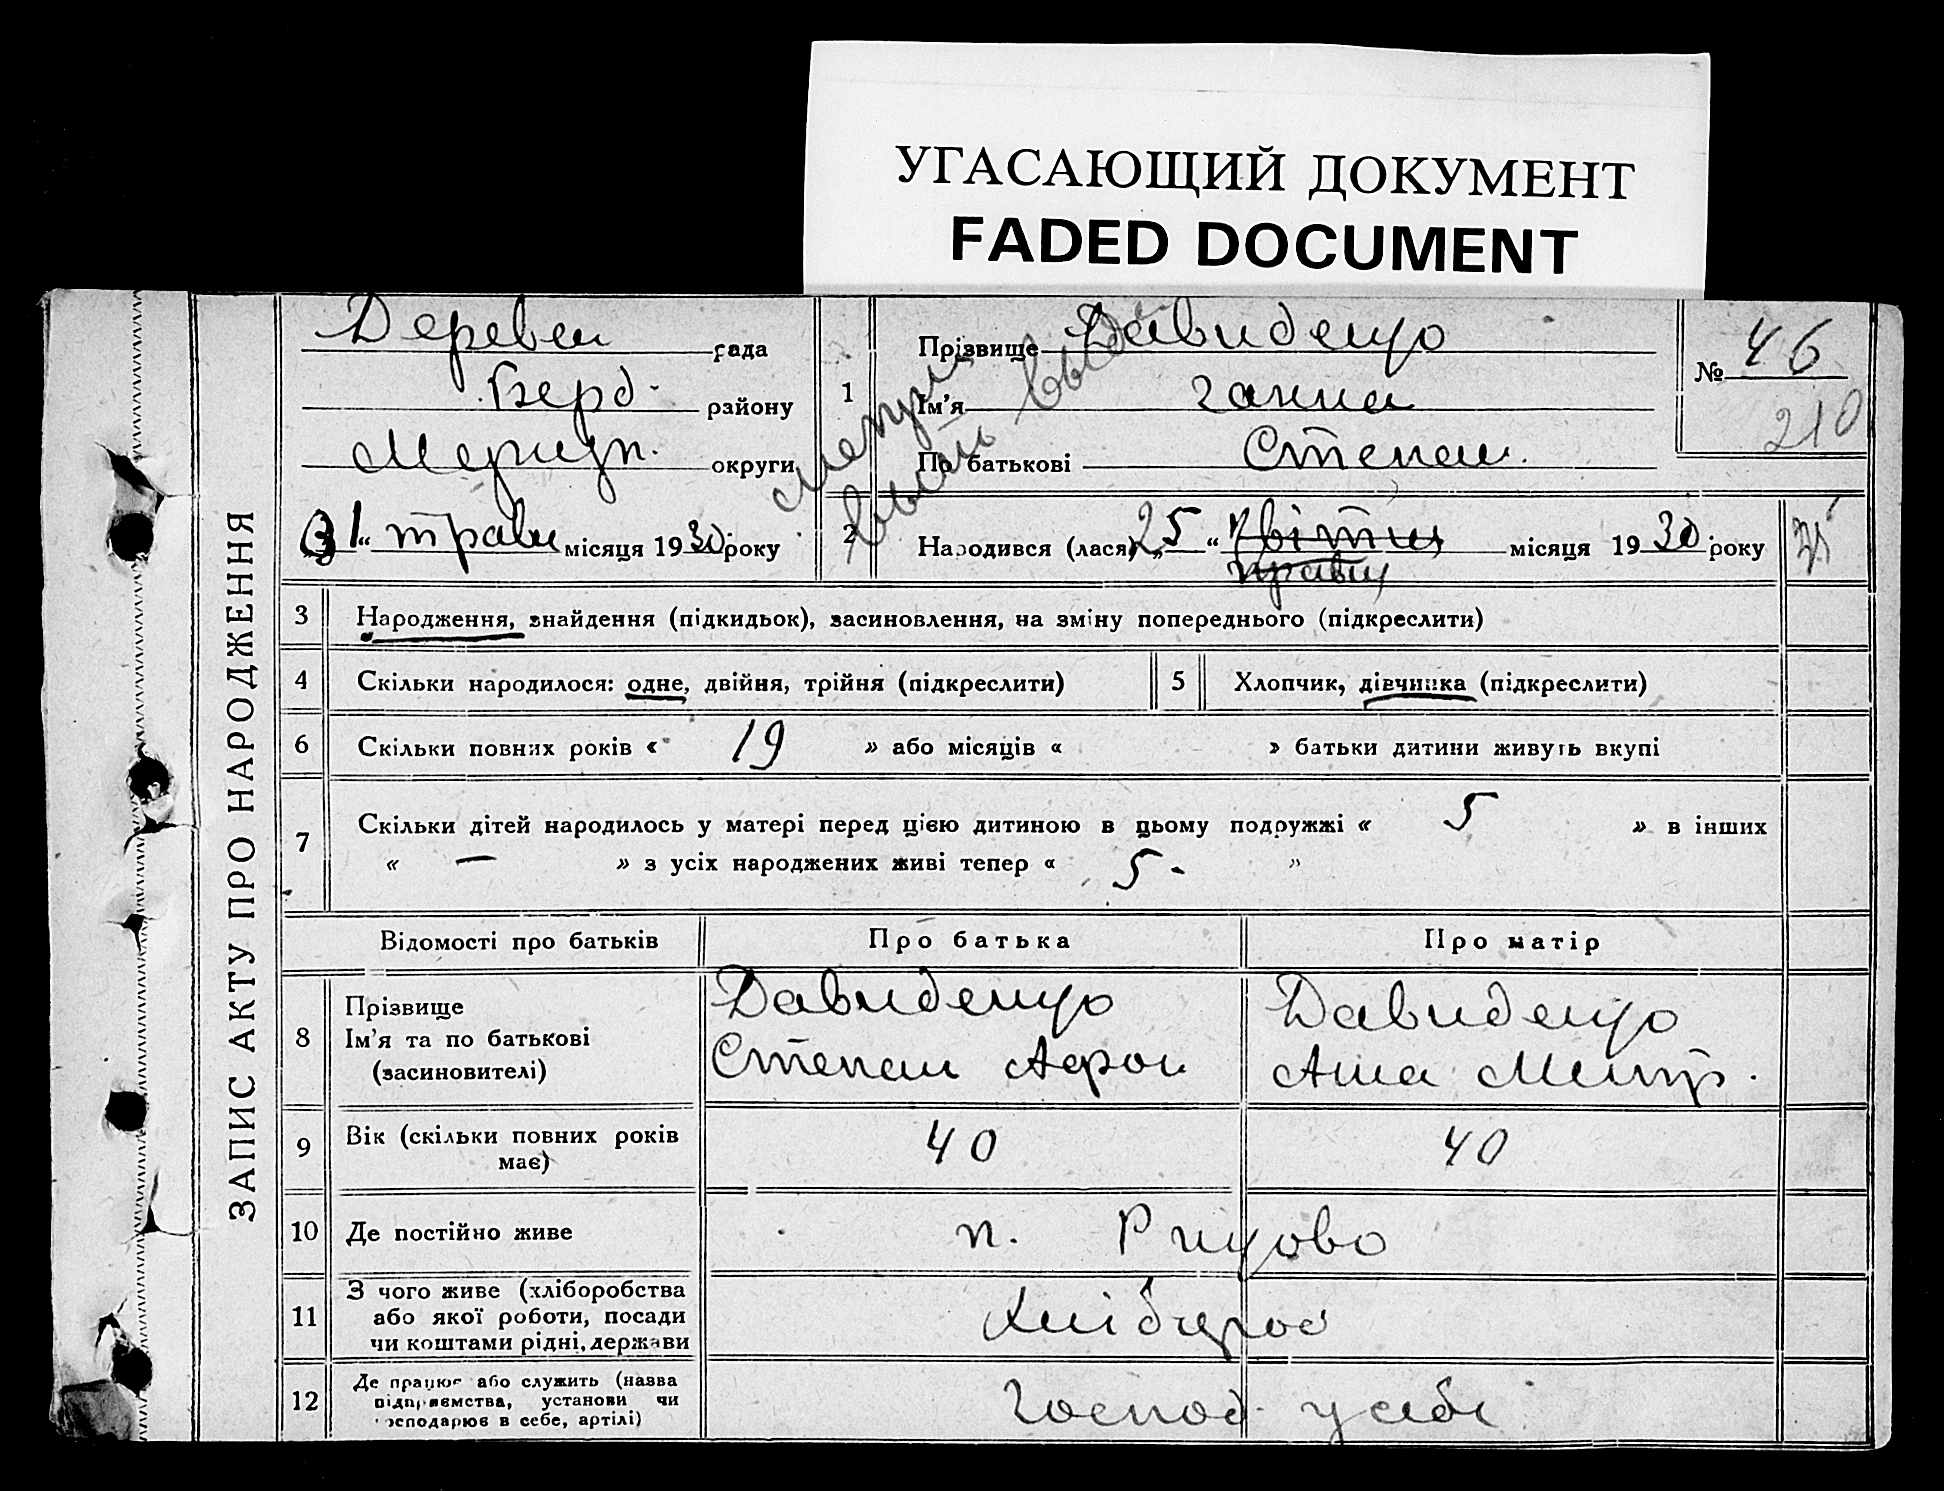 УГАСАЮЩИЙ ДОКУМЕНТ
FADED DOCUMENT
ЗАПИС АКТУ ПРО НАРОДЖЕННЯ
Деревен рада
Берд. району
округи
31 “ травн місяця 1930 року
1
Прізвище Давиденко
Ім’я Ганна
По батькові Степан.
№ 46
210
метри
2
Народився (лася) „ 25 “ квітня місяця 1930 року
травня
3 Народження, знайдення (підкидьок), засиновлення, на зміну попереднього (підкреслити)
4 Скільки народилося: одне, двійня, трійня (підкреслити) 5 Хлопчик, дівчинка (підкреслити)
6 Скільки повних років « 19 » або місяців « » батьки дитини живуть вкупі
7 Скільки дітей народилось у матері перед цією дитиною в цьому подружжі « 5 » в інших
« — » з усіх народжених живі тепер « 5 - »
Відомості про батьків Про батька Про матір
8 Прізвище
Ім’я та по батькові
(засиновителі)
Давиденко
Степан Афон
Давиденко
Анна Митр.
9 Вік (скільки повних років має) 40 40
10 Де постійно живе
11 З чого живе (хліборобства
або якої роботи, посади
чи коштами рідні, держави
Хлібороб
12 Де працює або служить (назва
підприємства, установи чи
господарює в себе, артілі)
Господ. у себе